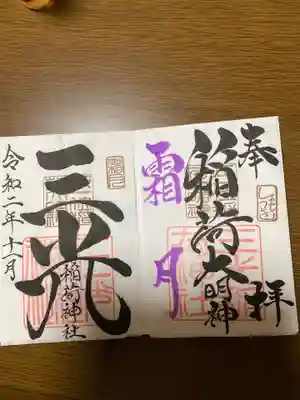 奉拝
稲荷大明神
霜月
三光
稲荷神社
令和二年十一月